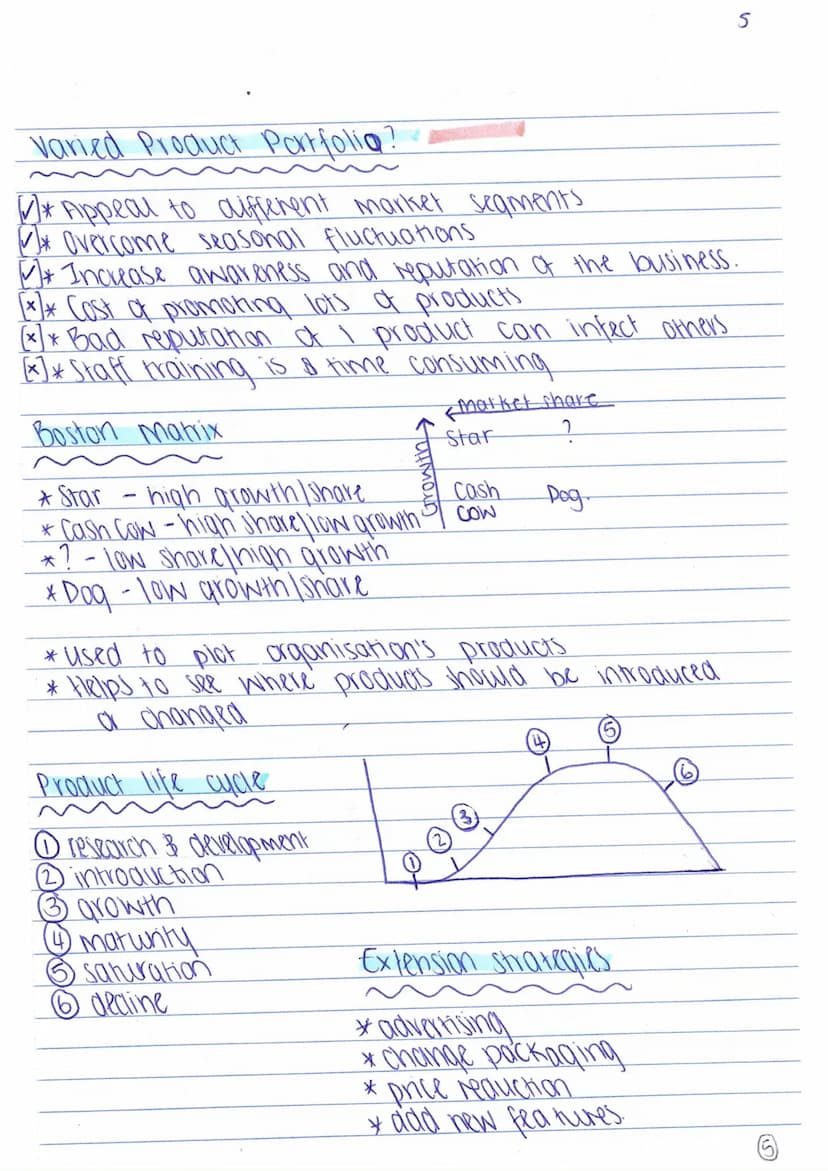 5
Varied Product Portfolio?
[✓]* Appeal to different market segments
[✓]* Overcome seasonal fluctuations
[✓]* Increase awareness and reputation of the business.
[x]* Cost of promoting lots of products
[x]* Bad reputation of 1 product can infect others
[x]* Staff training is & time consuming
Boston Matrix
* Star - high growth/share
* Cash Cow - high share/low growth
* ? - low share/high growth
* Dog - low growth/share
← market share
Growth
Star ?
Cash Dog.
cow
* used to plot organisation's products
* Helps to see where products should be introduced
or changed
Product life cycle
① research & development
② introduction
③ growth
④ maturity
⑤ saturation
⑥ decline
① ② ③ ④ ⑤ ⑥
Extension strategies
* advertising
* change packaging
* price reduction
* add new features.
⑤